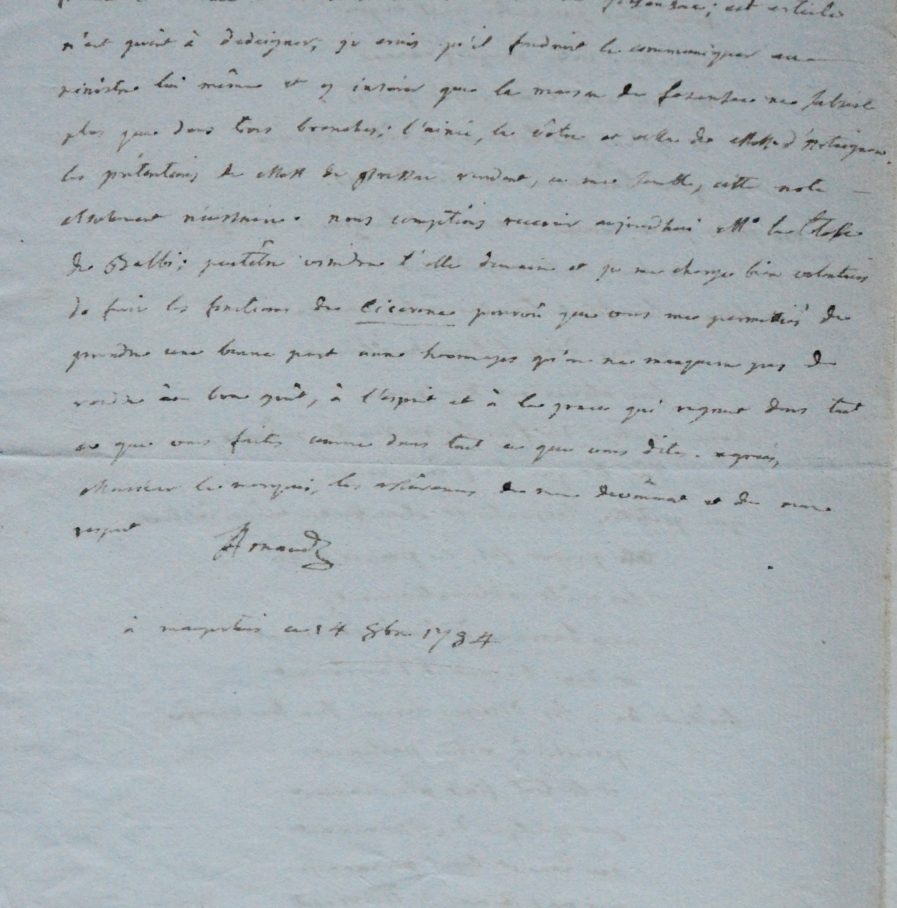 cet article
n'est point à dedaigner, je crois qu'il faudroit le communiquer au
ministre lui même et y insérer que la maison de fezensac ne subsiste
plus que dans trois branches; l'ainée, la vôtre et celle de MM. d'Artaignan.
les prétentions de MM. de rendent, ce me semble, cette note
absolument nécessaire. nous comptons recevoir aujourdhui Mde la Ctesse
de Balbi; peutêtre viendra t'elle demain et je me charge bien volontiers
de faire les fonctions de Cicerone pourvû que vous me permettiés de
prendre une bonne part aux hommages qu'on ne manquera pas de
rendre au bon goût, à l'esprit et à la grace qui regnent dans tout
ce que vous faites comme dans tout ce que vous dites. agréés,
Monsieur le marquis, les assûrances de mon devoûment et de mon
respect
Arnaud
à maupertuis ce 14 8bre 1784